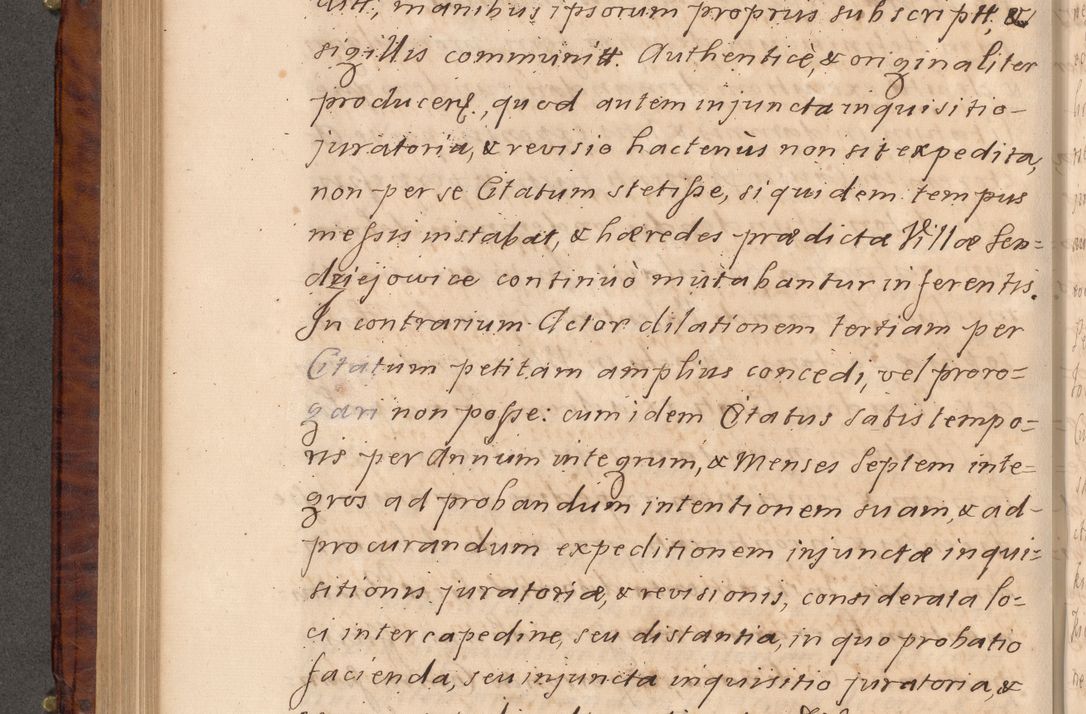 ditt, manibus ipsorum proprius subscriptt, &
sigillis communitt. Authenticè, & originaliter
producerẽ, quod autem injuncta inquisitio-
juratoria, & revisio hactenùs non sit expedita,
non per se Citatum stetisse, siquidem tempus
messis instabat, & hæredes prædictæ Villæ Sen=
dziejowice continuò mutabantur inferentis.
In contrarium Actor dilationem tertiam per
Citatum petitam amplius concedi, vel proro=
gari non posse: cum idem Citatus satis tempo=
ris per Annum integrum, & Menses Septem inte=
gros ad probandum intentionem suam, & ad-
procurandum expeditionem injunctæ inqui=
sitionis juratoriæ, & revisionis, considerata lo=
ci intercapedine, seu distantia, in quo probatio
facienda, seu injuncta inquisitio juratoria, &